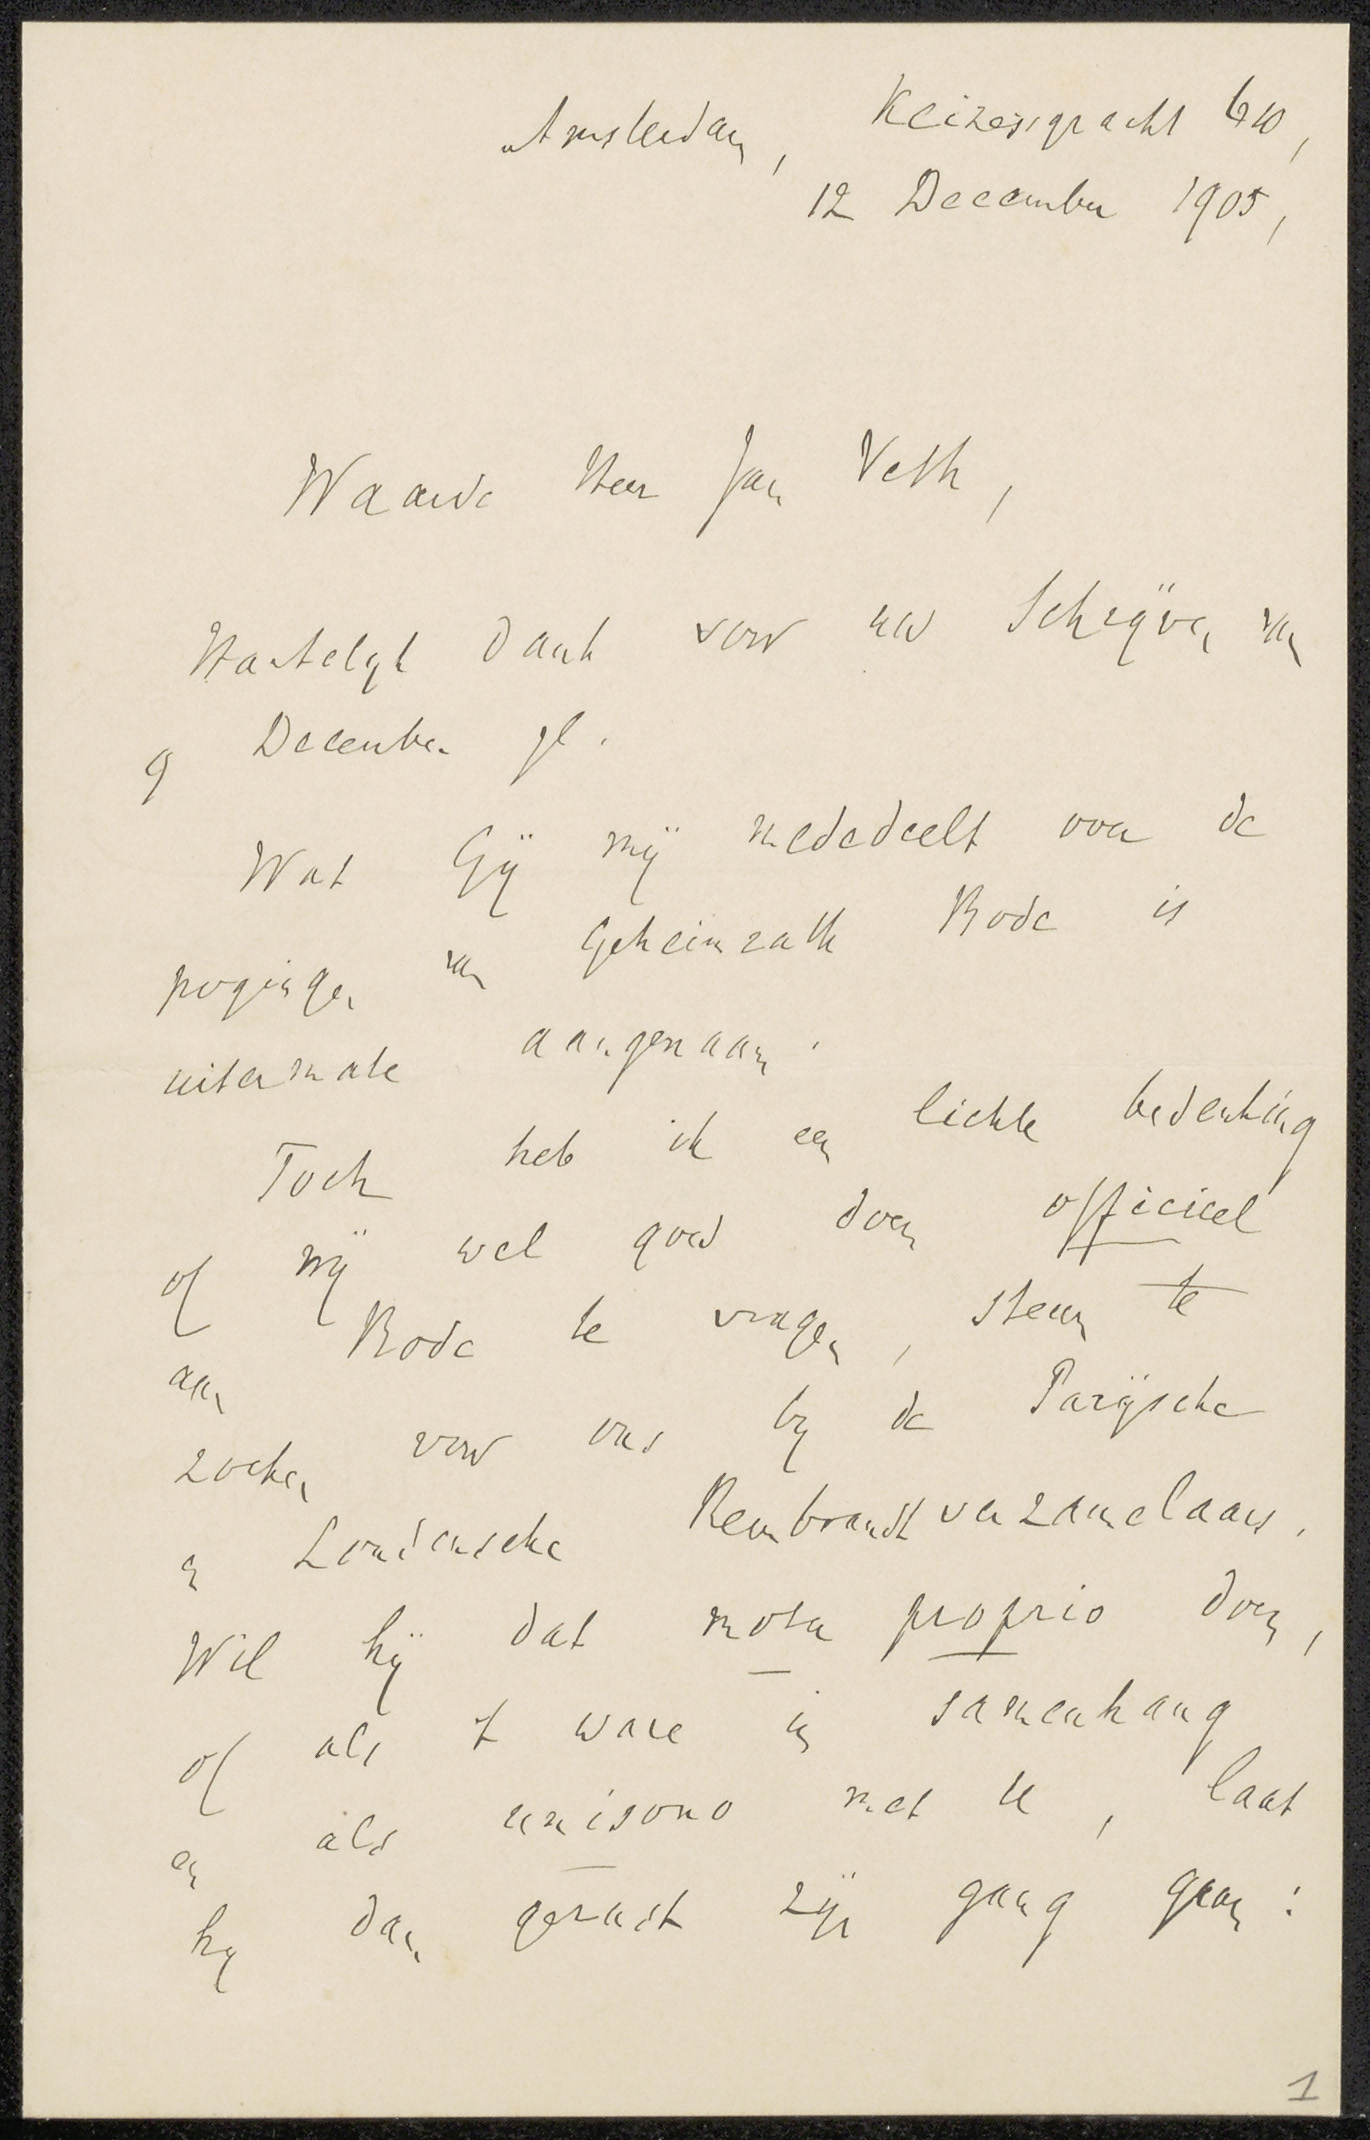 Amsterdam, Keizersgracht 610,
12 December 1905,
Waarde Heer Jan Veth,
Hartelijk dank voor uw schrijven van
9 December jl.
Wat Gij mij mededeelt over de
pogingen van Geheimrath Bode is
uitermate aangenaam.
Toch heb ik een lichte bedenking
of wij wel goed doen officieel
aan Bode te vragen, steun te
zoeken voor ons bij de Parijsche
en Londensche Rembrandtverzamelaars.
Wil hij dat motu proprio doen,
of als 't ware in samenhang
en als unisono met U, laat
hij dan gerust zijn gang gaan:
1